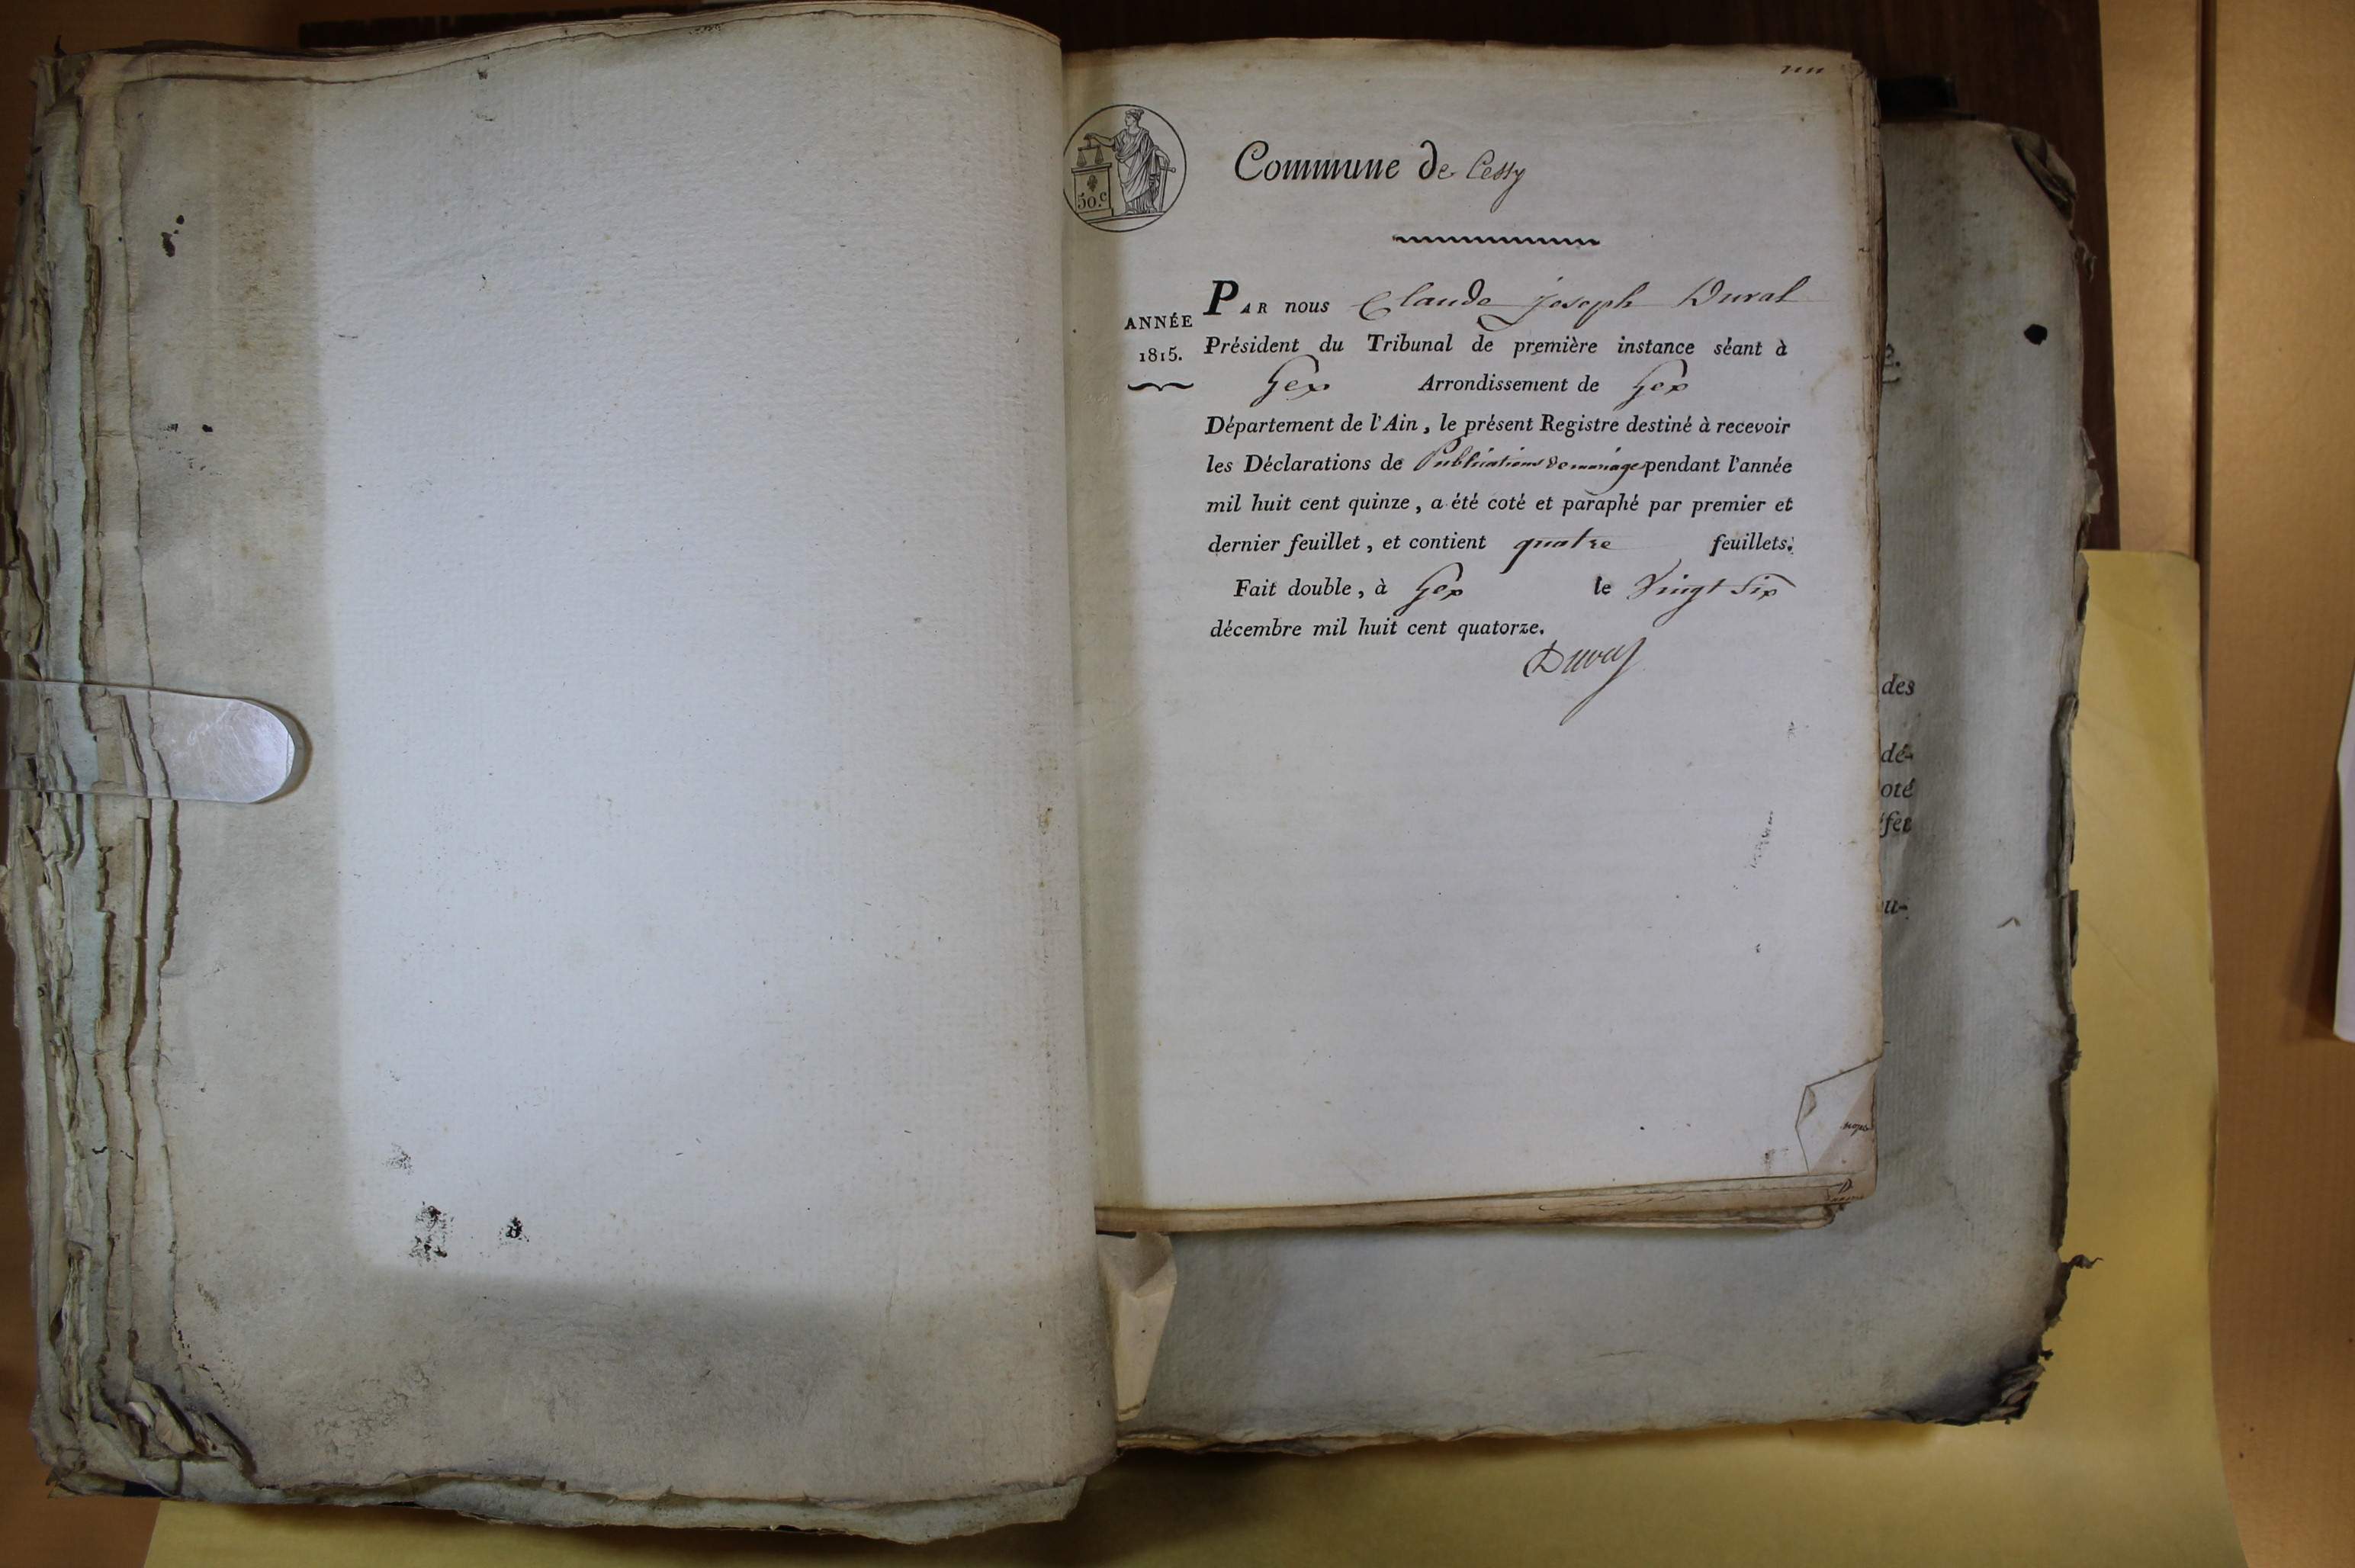 50.c
Commune de Cessy
ANNÉE
1815.
PAR nous Claude Joseph Duval
Président du Tribunal de première instance séant à
Gex Arrondissement de Gex
Département de l'Ain, le présent Registre destiné à recevoir
les Déclarations de Publications de mariages pendant l'année
mil huit cent quinze, a été coté et paraphé par premier et
dernier feuillet, et contient quatre feuillets.
Fait double, à Gex le Vingt Six
décembre mil huit cent quatorze.
Duval
des
dé-
oté
fet
u-